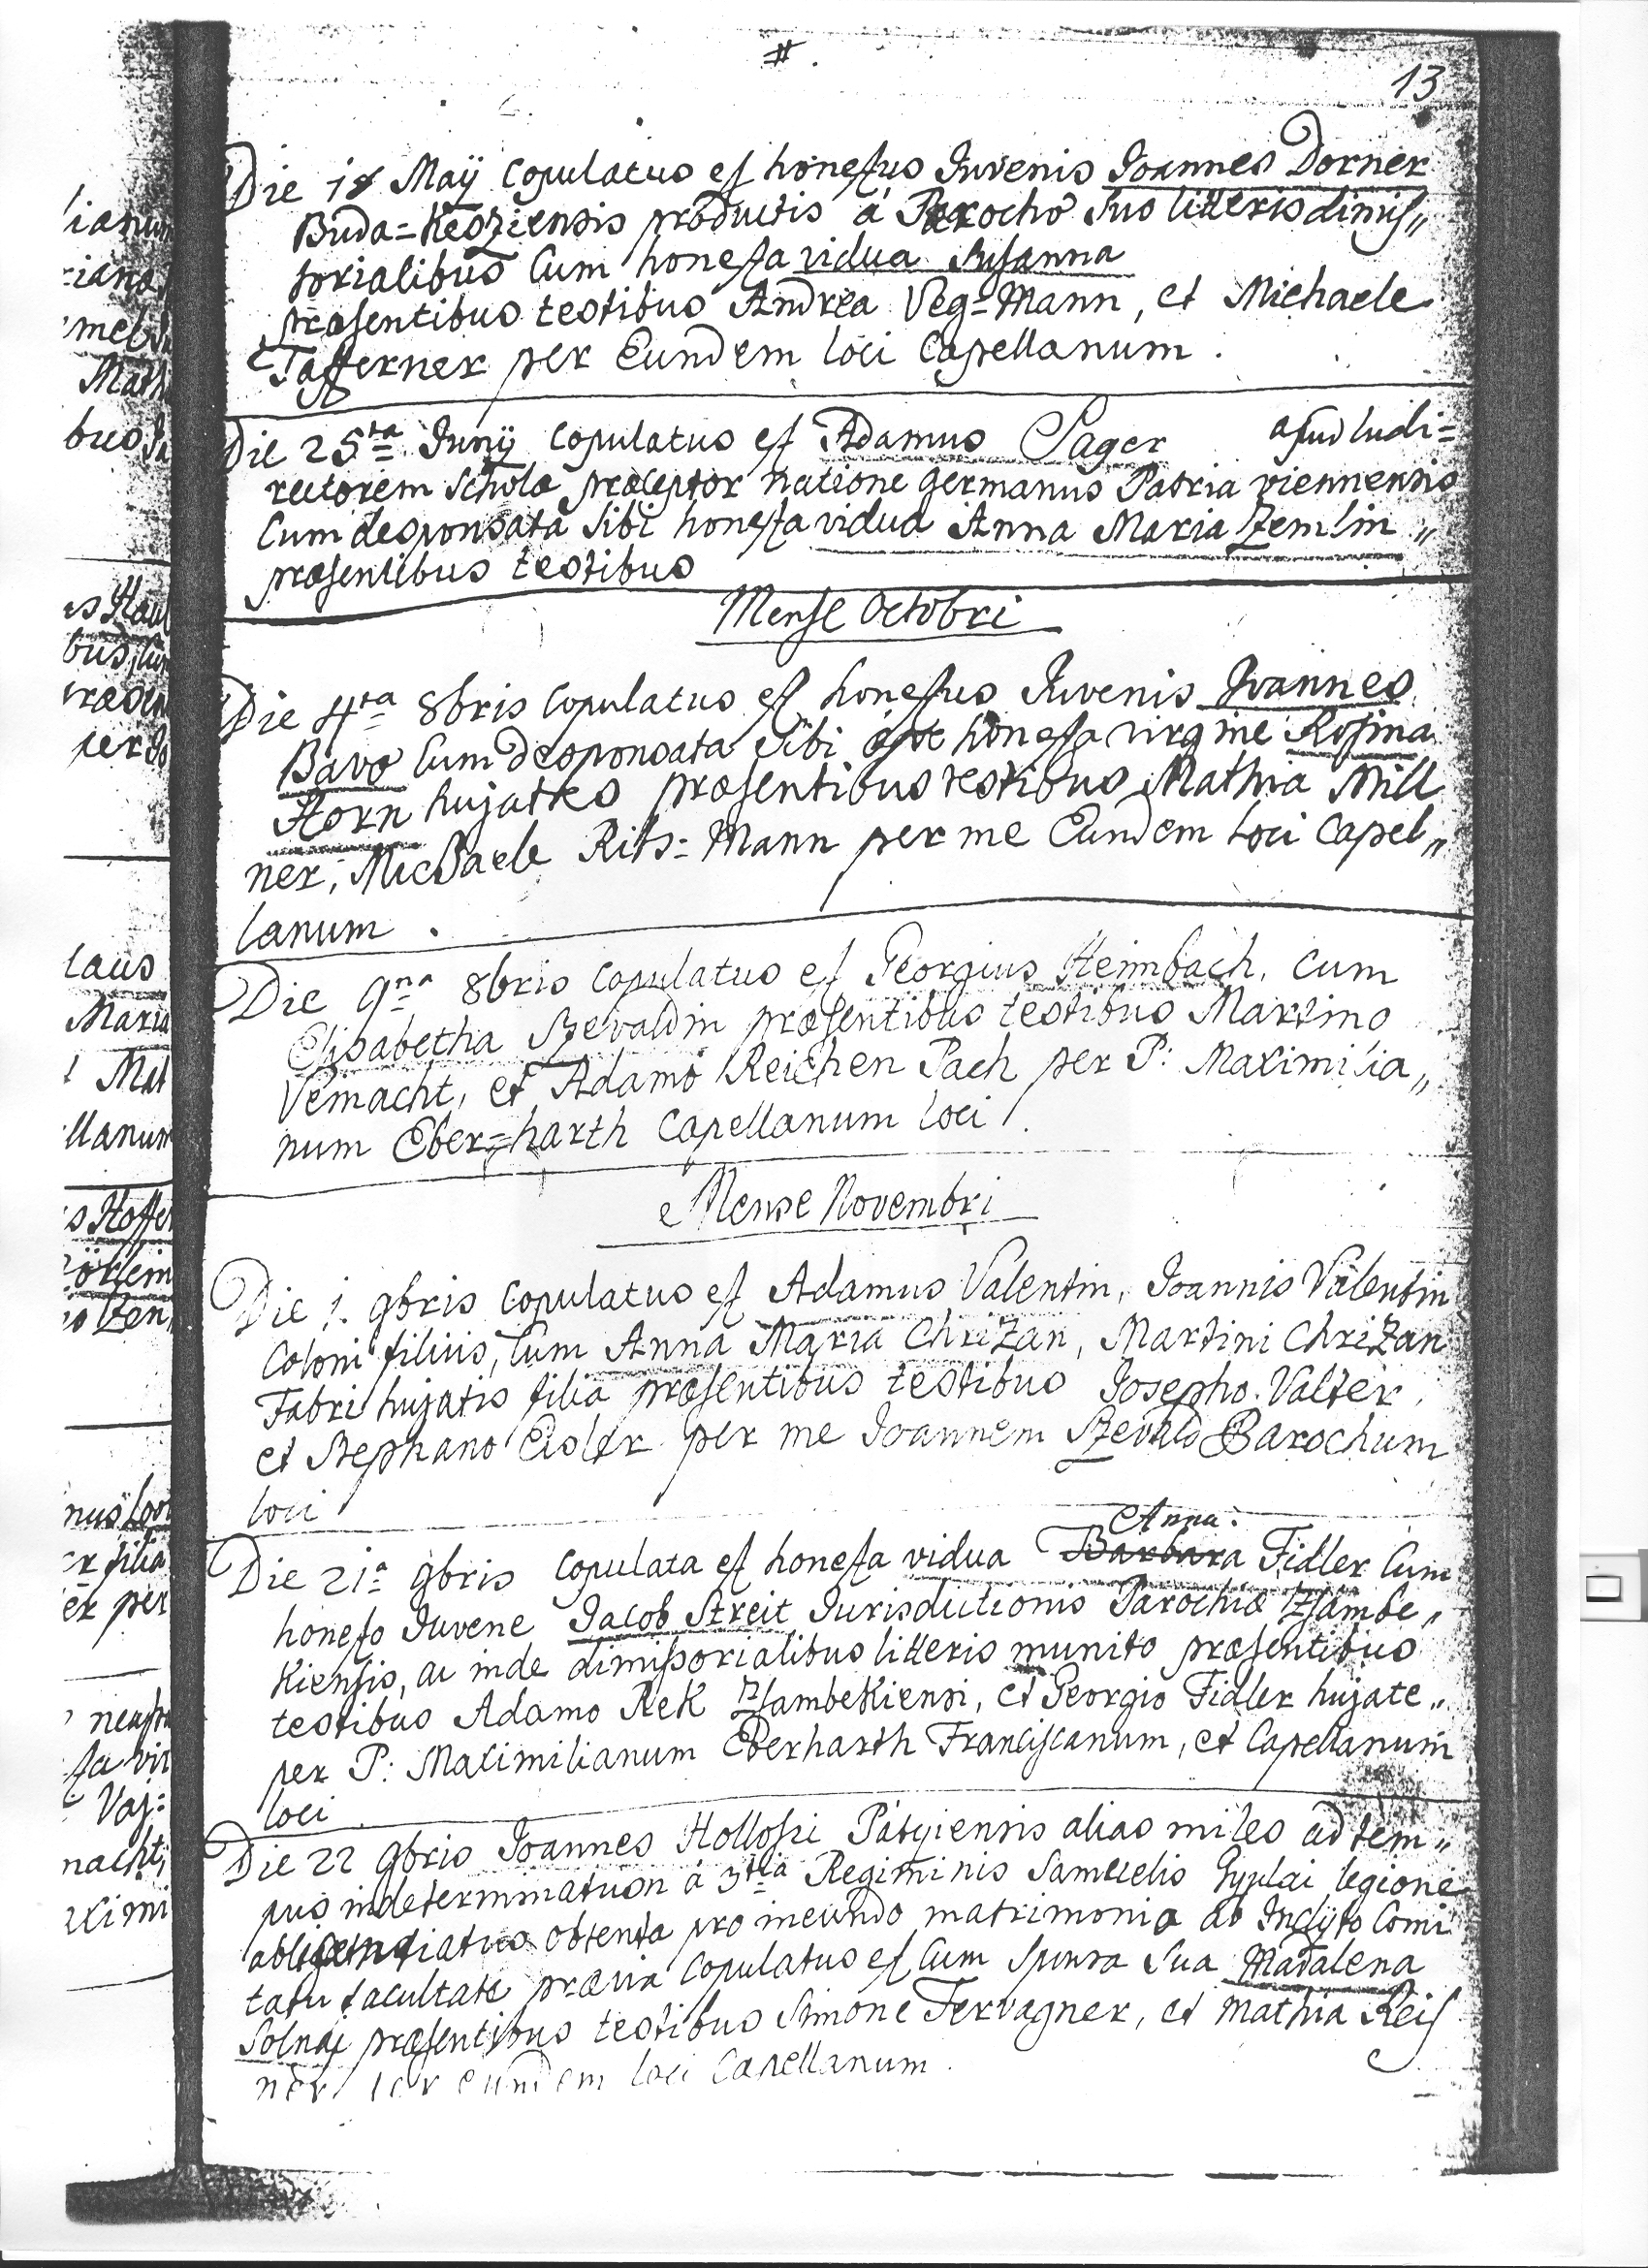 #.
13
Die 18 Maÿ Copulatus est honestus Juvenis Joannes Dorner
Buda=Kesziensis productis á Parocho suo litteris dimis„
sorialibus Cum honesta vidua Susanna
præsentibus testibus Andrea Veg=Mann, et Michaele
Tafferner per Eundem loci Capellanum.
Die 25ta Junÿ Copulatus est Adamus Pager apud ludi=
rectorem Scholæ præceptor natione germanus Patria viennensis
Cum desponsata sibi honesta vidua Anna Maria Zemlin„
præsentibus testibus
Mense Octobri
Die 4ta 8bris Copulatus est honestus Juvenis Joannes
Bavo Cum desponsata sibi honesta virgine Rosina
Horn hujates præsentibus testibus Mathia Mill
ner, Michaele Rits=Mann per me Eundem loci Capel„
lanum.
Die 9na 8bris Copulatus est Georgius Heimbach, cum
Elisabetha Szevaldin præsentibus testibus Martino
Veinacht, et Adamo Reichen Pach per P: Maximilia„
num Eber=harth Capellanum loci.
Mense Novembri
Die 1. 9bris Copulatus est Adamus Valentin, Joannis Valentin
Coloni filius, Cum Anna Maria Chrizan, Martini Chrizan
Fabri hujatis filia præsentibus testibus Josepho Valter
et Stephano Eisler per me Joannem Szevald Parochum
loci
Anna.
Die 21a 9bris Copulata est honesta vidua Barbara Fidler Cum
honesto Juvene Jacob Streit Jurisdictionis Parochiæ Zsambe„
Kiensis, ac inde dimissorialibus litteris munito præsentibus
testibus Adamo Rek ZsambeKiensi, et Georgio Fidler hujate„
per P: Maximilianum Eberharth Franciscanum, et Capellanum
loci
Die 22 9bris Joannes Hollosi Pátyiensis alias miles ad tem„
pus indeterminatum á 3tia Regiminis Samuelis Gyulai legione
obtenta pro ineundo matrimonio ab Inclyto Comi
tatu facultate prævia Copulatus est Cum sponsa sua Madalena
Solnai præsentibus testibus Simone Fervagner, et Mathia Reis
ner per eundem loci Capellanum.
lianum
Math
laus
Maria
llanum
filia
er per
Vaj=
nacht,
ximi